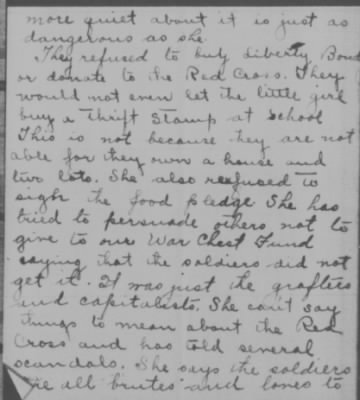 more quiet about it is just as
dangerous as she.
They refused to buy Liberty Bond
or donate to the Red Cross. They
would not even let the little girl
buy a thrift stamp at school
This is not because they are not
able for they own a house and
two lots. She also refused to
sigh the food pledge She has
tried to persuade others not to
give to our War Chest Fund
saying that the soldiers did not
get it. It was just the grafters
and capitalists. She cant say
things to mean about the Red
Cross and has told several
scandals. She says the soldiers
are all brutes and to